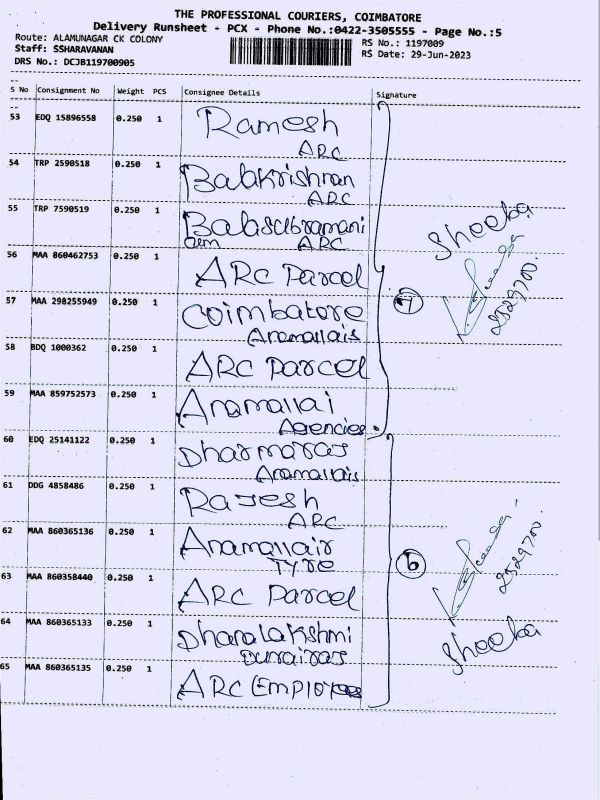 THE PROFESSIONAL COURIERS, COIMBATORE
Delivery Runsheet - PCX - Phone No.:0422-3505555 - Page No.:5
Route: ALAMUNAGAR CK COLONY
RS No.: 1197009
Staff: SSHARAVANAN
RS Date: 29-Jun-2023
DRS No.: DCJB119700905
S No Consignment No Weight PCS Consignee Details Signature
53 EDQ 15896558 0.250 1 Ramesh
ARC
54 TRP 2590518 0.250 1 Balakrishnan
ARC
55 TRP 7590519 0.250 1 Balasubramani
ARC
56 MAA 860462753 0.250 1 ARC Parcel
Sheeba
57 MAA 298255949 0.250 1 Coimbatore
Anamallais
7
2529700.
58 BDQ 1000362 0.250 1 ARC Parcel
59 MAA 859752573 0.250 1 Anamallai
Agencies.
60 EDQ 25141122 0.250 1 Dharmaras
Anamallais
61 DDG 4858486 0.250 1 Rajesh
ARC
62 MAA 860365136 0.250 1 Anamallais
Tyre
6
2529700.
63 MAA 860358440 0.250 1 ARC Parcel
64 MAA 860365133 0.250 1 Dhanalakshmi
Durairas
Sheeba
65 MAA 860365135 0.250 1 ARC Employees